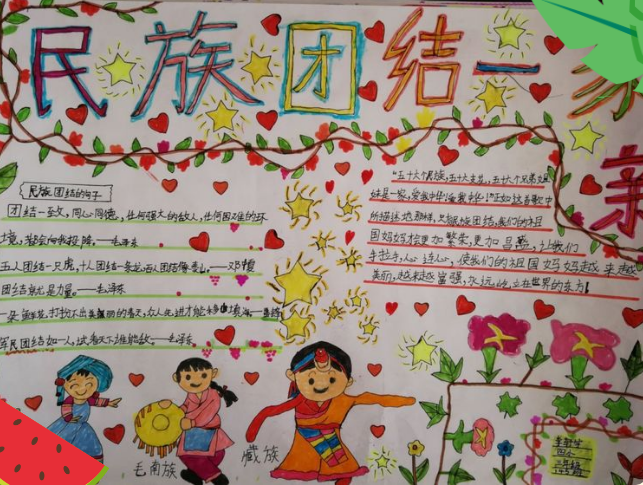 民族团结一家亲
民族团结的句子
团结一至女,同心同德,任何强大的敌人,任何困难的环
境,都会向我投降。——毛泽东
五人团结一只虎,十人团结一条龙,百人团结像泰山。——邓中夏
团结就是力量。——毛泽东
一朵鲜花打扮不出美丽的春天,众人先进才能
军民团结如一人,试看天下谁能敌——毛泽东
"五十六个民族,五十六支花,五十六个兄弟姐
妹是一家,爱我中华
所描述地那样,只能民族团结,我们的祖
国妈妈才会更加繁荣,更加昌盛,让我们
手拉手,心连心,使我们的祖国妈妈越来越
美丽,越来越富强,永远屹立在世界的东方!
毛南族
藏族